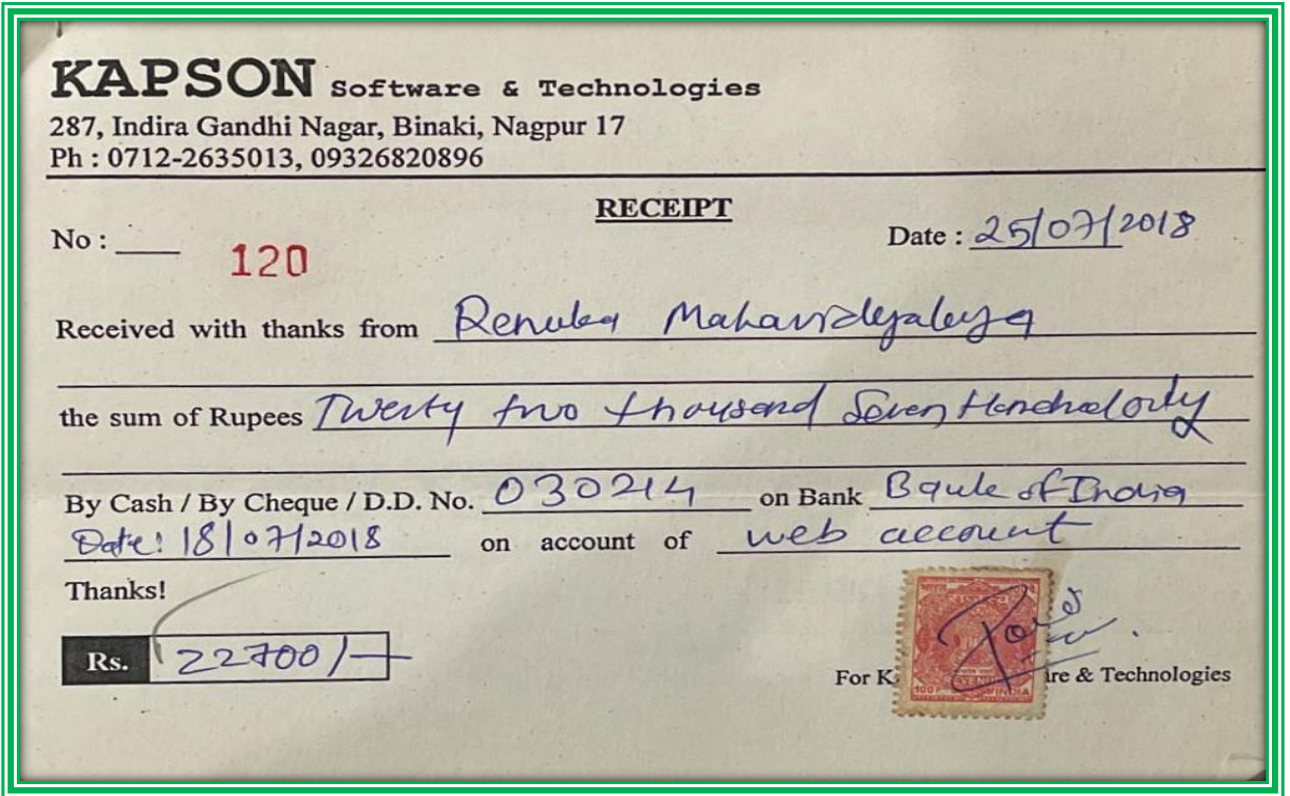 KAPSON Software & Technologies
287, Indira Gandhi Nagar, Binaki, Nagpur 17
Ph : 0712-2635013, 09326820896
RECEIPT
No : ___ 120 Date : 25/07/2018
Received with thanks from Renuka Mahavidyalaya
the sum of Rupees Twenty two thousand Seven Hundred only
By Cash / By Cheque / D.D. No. 030214 on Bank Bank of India
Date: 18/07/2018 on account of web account
Thanks!
Rs. 22700/-
For K re & Technologies
100 REVENUE INDIA